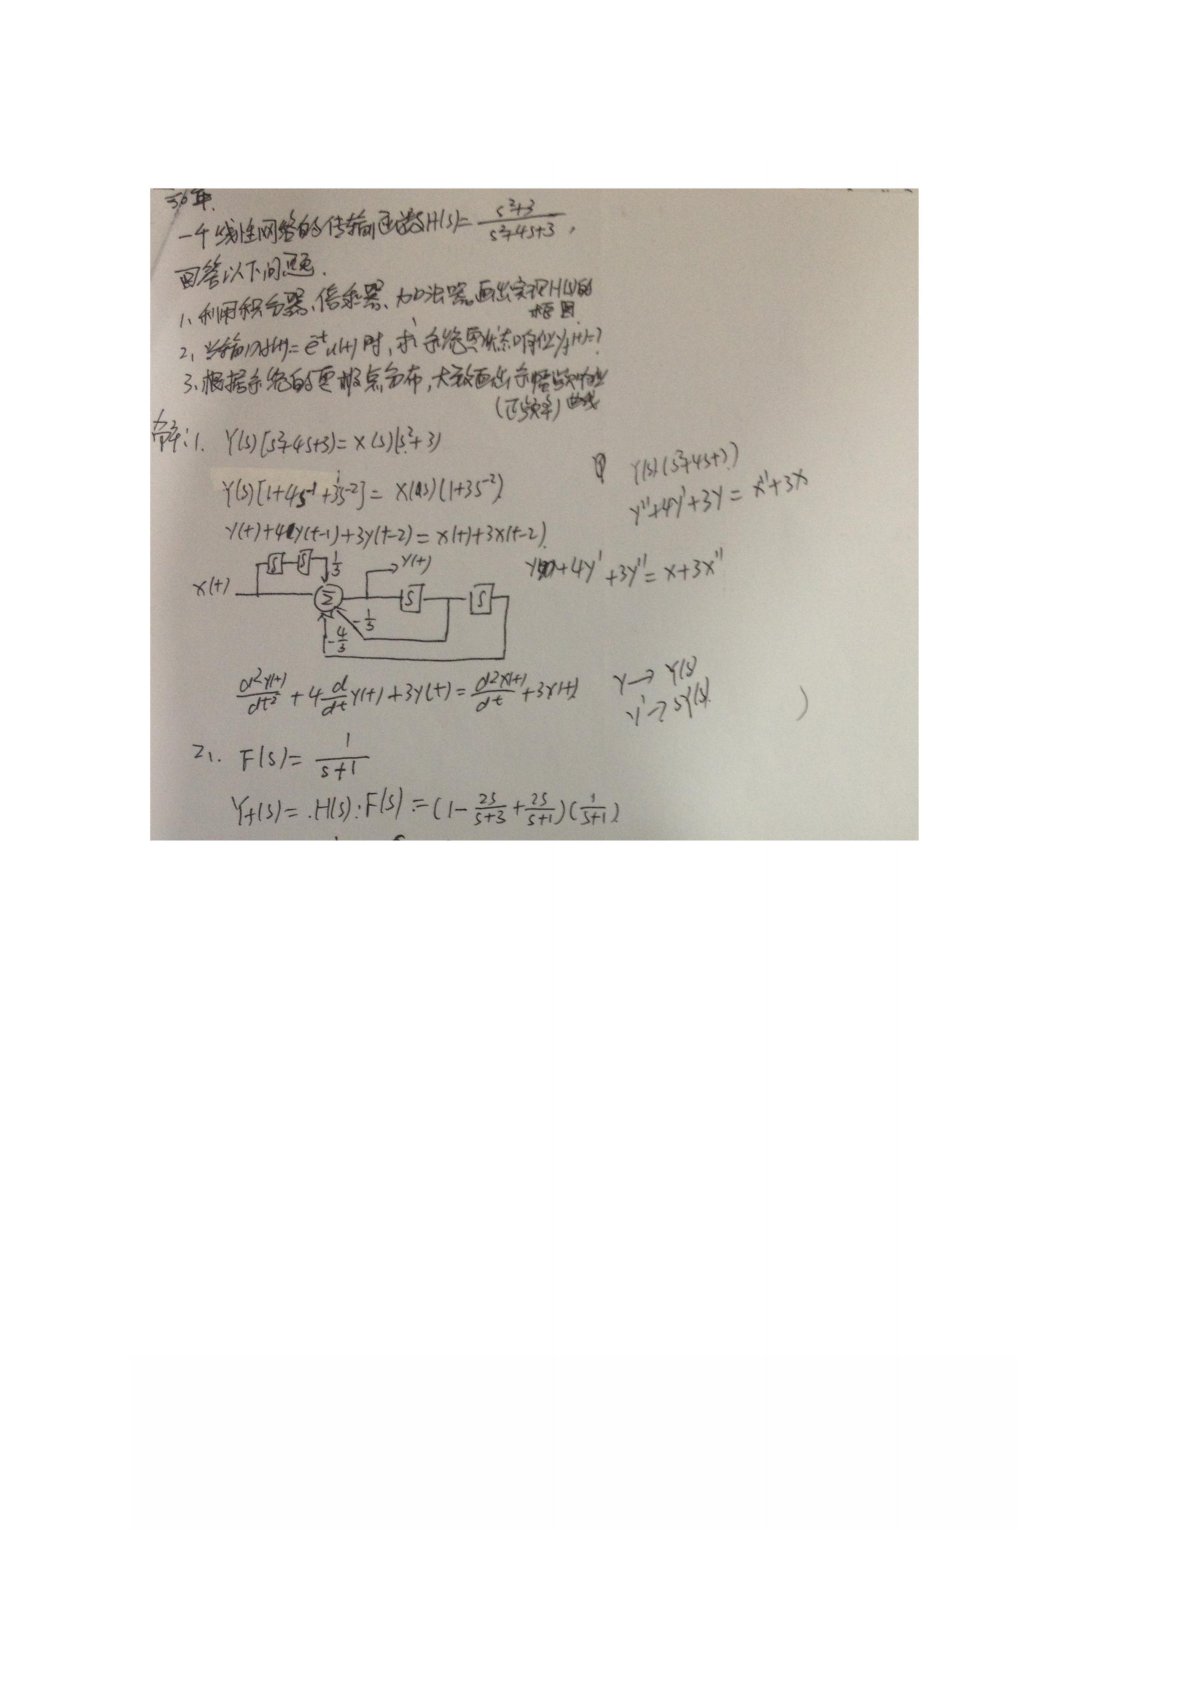 一个线性网络的传输函数H(s)=(s²+3)/(s²+4s+3),
回答以下问题.
1、利用积分器、倍乘器、加法器,画出实现H(s)的
框图
2、当输入f(t)=e^-t u(t)时,求系统零状态响应y_f(t)=?
3、根据系统的零极点分布,大致画出系统幅频响应
(正频率)曲线
解:1. Y(s)[s²+4s+3)=X(s)(s²+3)
Y(s)(s²+4s+3)
Y(s)[1+4s^-1+3s^-2]=X(s)(1+3s^-2)
y''+4y'+3y=x''+3x
y(t)+4y(t-1)+3y(t-2)=x(t)+3x(t-2)
+4y'+3y''=x+3x''
∫ ∫ 1/3
y(t)
x(t)
Σ ∫ ∫
-1/3
-4/3
d²y(t)/dt²+4 d/dt y(t)+3y(t)=d²x(t)/dt+3x(t)
y→Y(s)
y'→sY(s)
)
2、F(s)=1/(s+1)
Y_f(s)=H(s)·F(s)=(1-2s/(s+3)+2s/(s+1))(1/(s+1))